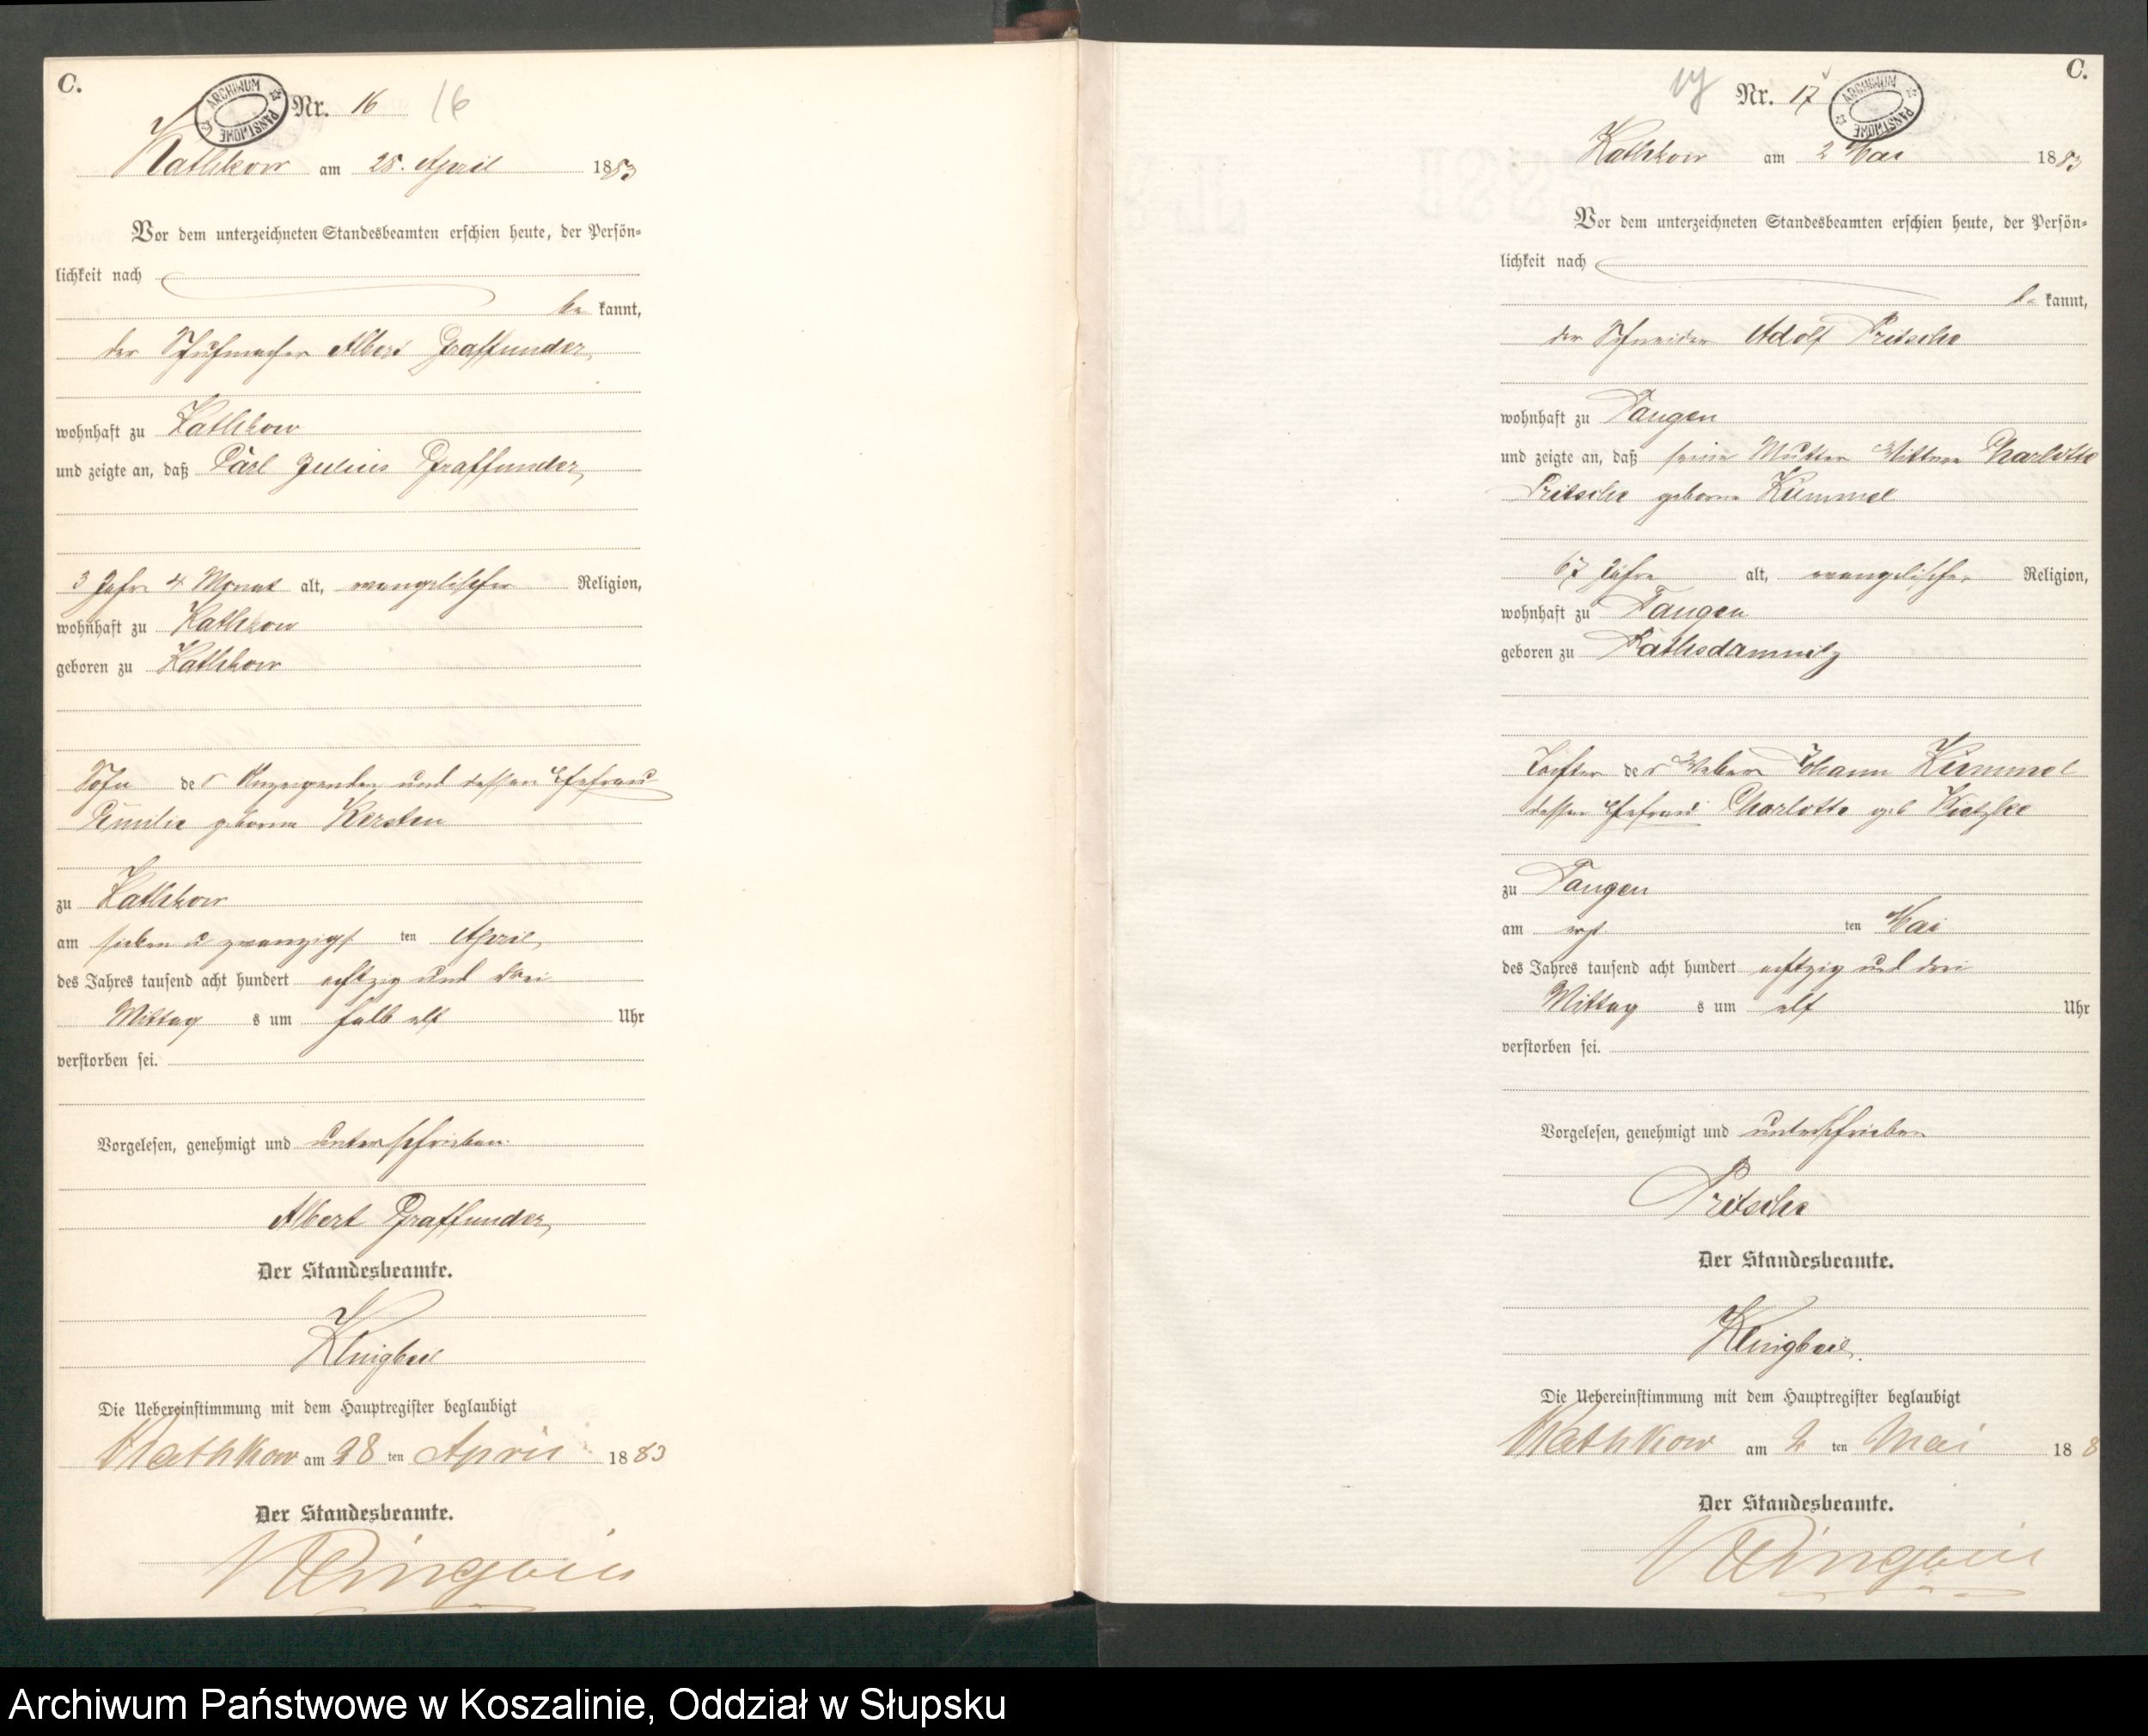 C.
ARCHIWUM PAŃSTWOWE
Nr. 16 16
Kathkow am 28. April 1883
Vor dem unterzeichneten Standesbeamten erschien heute, der Persön-
lichkeit nach
be kannt,
der Schuhmacher Albert Graffunder,
wohnhaft zu Kathkow
und zeigte an, daß Carl Julius Graffunder,
3 Jahr 4 Monat alt, evangelischer Religion,
wohnhaft zu Kathkow
geboren zu Kathkow
Sohn des Anzeigenden und dessen Ehefrau
Emilie geborne Kersten
zu Kathkow
am sieben u zwanzigs ten April
des Jahres tausend acht hundert achtzig und drei
Mittag s um halb elf Uhr
verstorben sei.
Vorgelesen, genehmigt und unterschrieben
Albert Graffunder,
Der Standesbeamte.
Klingbeil
Die Uebereinstimmung mit dem Hauptregister beglaubigt
Kathkow am 28 ten April 1883
Der Standesbeamte.
Klingbeil
C.
17 Nr. 17
ARCHIWUM PAŃSTWOWE
Kathkow am 2 Mai 1883
Vor dem unterzeichneten Standesbeamten erschien heute, der Persön-
lichkeit nach
be kannt,
der Schneider Adolf Pritsche
wohnhaft zu Tangen
und zeigte an, daß seine Mutter Wittwe Charlotte
Pritsche geborne Kümmel
67 Jahre alt, evangelischer Religion,
wohnhaft zu Tangen
geboren zu Rathsdamnitz
Tochter des Weber Johann Kümmel
dessen Ehefrau Charlotte geb
zu Tangen
am erst ten Mai
des Jahres tausend acht hundert achtzig und drei
Mittag s um elf Uhr
verstorben sei.
Vorgelesen, genehmigt und unterschrieben
Pritsche
Der Standesbeamte.
Klingbeil.
Die Uebereinstimmung mit dem Hauptregister beglaubigt
Kathkow am 2 ten Mai 188
Der Standesbeamte.
Klingbeil
Archiwum Państwowe w Koszalinie, Oddział w Słupsku